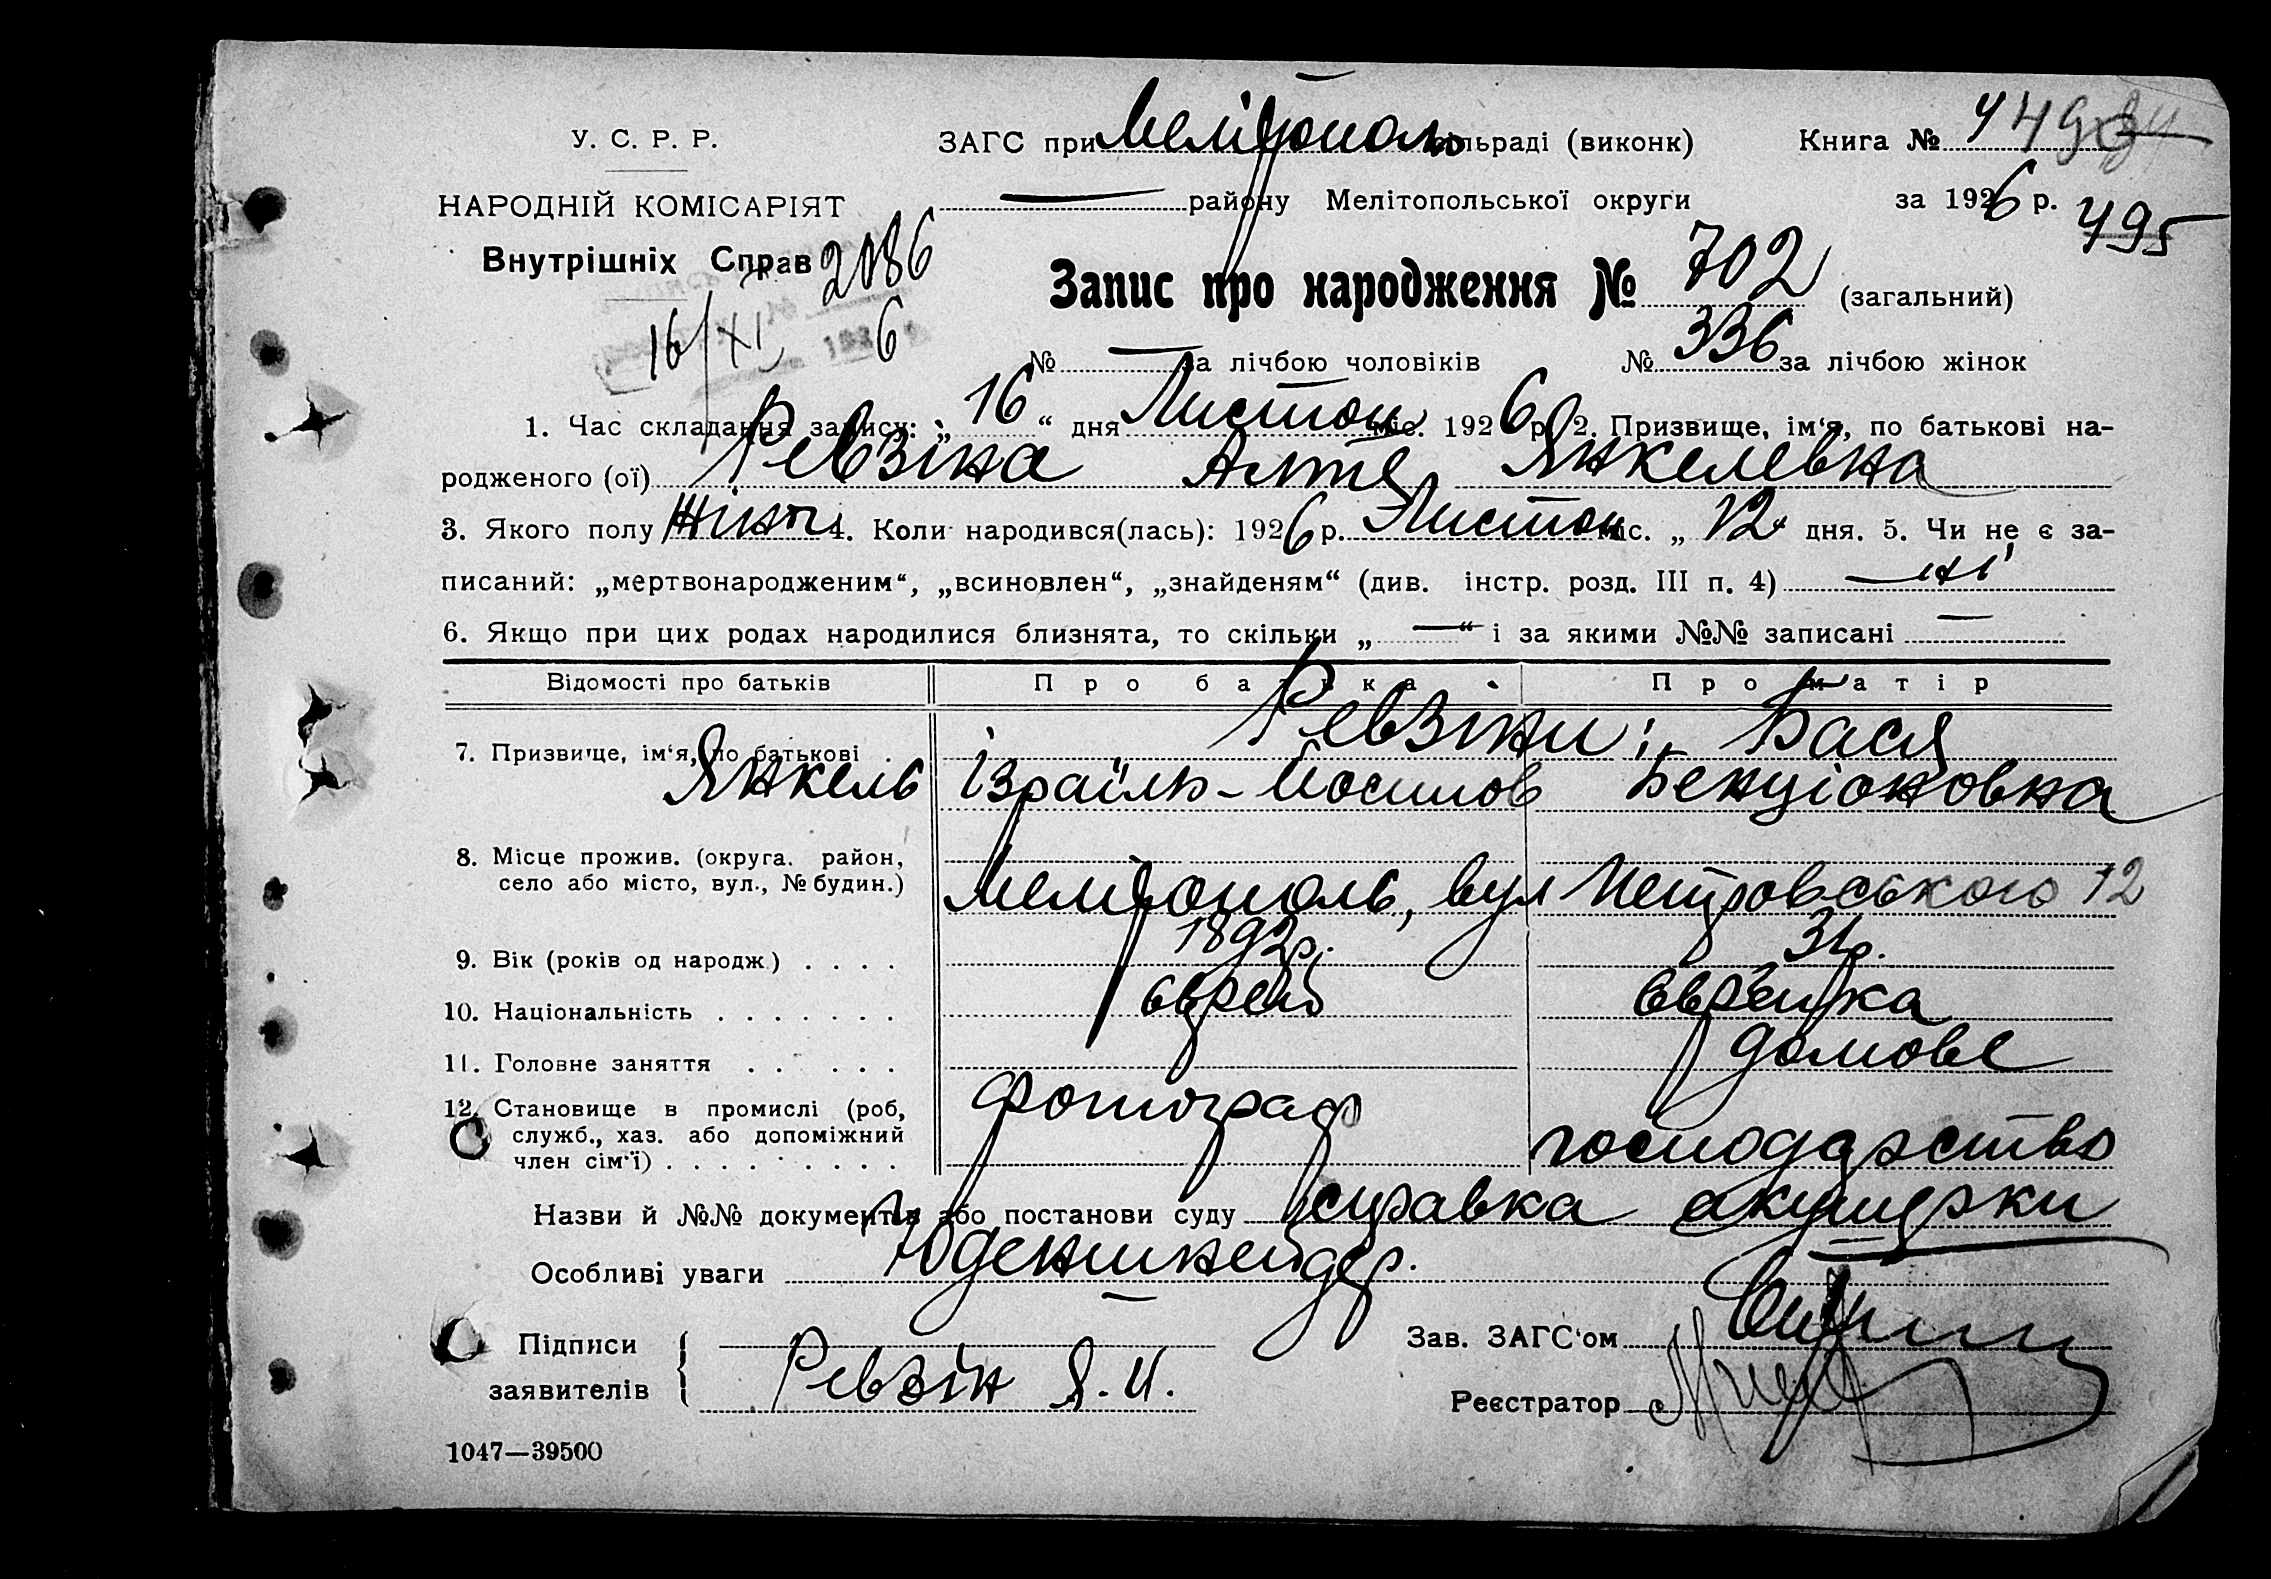 У. С. Р. Р.
НАРОДНІЙ КОМІСАРІЯТ
Внутрішніх Справ 2086
16/XI 6
ЗАГС при Мелітополь сільраді (виконк) Книга №
— району Мелітопольської округи за 1926 р. 495
Запис про народження № 702 (загальний)
№ — за лічбою чоловіків № 336 за лічбою жінок
1. Час складання запису: „ 16 “ дня Листоп міс. 1926 р. 2. Призвище, ім‘я, по батькові на-
родженого (ої) Ревзіна Алте Янкелевна
3. Якого полу Жіноч 4. Коли народився(лась): 1926 р. Листоп міс. „ 12 дня. 5. Чи не є за-
писаний: „мертвонародженим“, „всиновлен“, „знайденям“ (див. інстр. розд. III п. 4) — ні
6. Якщо при цих родах народилися близнята, то скільки „ — “ і за якими №№ записані —
Відомості про батьків Про батька Про матір
7. Призвище, ім‘я, по батькові . Ревзіни: Бася
Янкель Ізраїль-Йосипов Бенціоновна
8. Місце прожив. (округа, район,
село або місто, вул., № будин.) Мелітополь, вул Петровського 12
9. Вік (років од народж.) . . . . 1892р. 31р.
10. Національність . . . . . . . єврей єврейка
11. Головне заняття . . . . . . домове
12. Становище в промислі (роб, фотограф
служб., хаз. або допоміжний господарство
член сім‘ї) . . . . . . . . .
Назви й №№ документів або постанови суду справка акушерки
Особливі уваги Юденшнейдер.
Підписи
заявителів Ревзін Я. И.
Зав. ЗАГС‘ом
Реєстратор
1047—39500